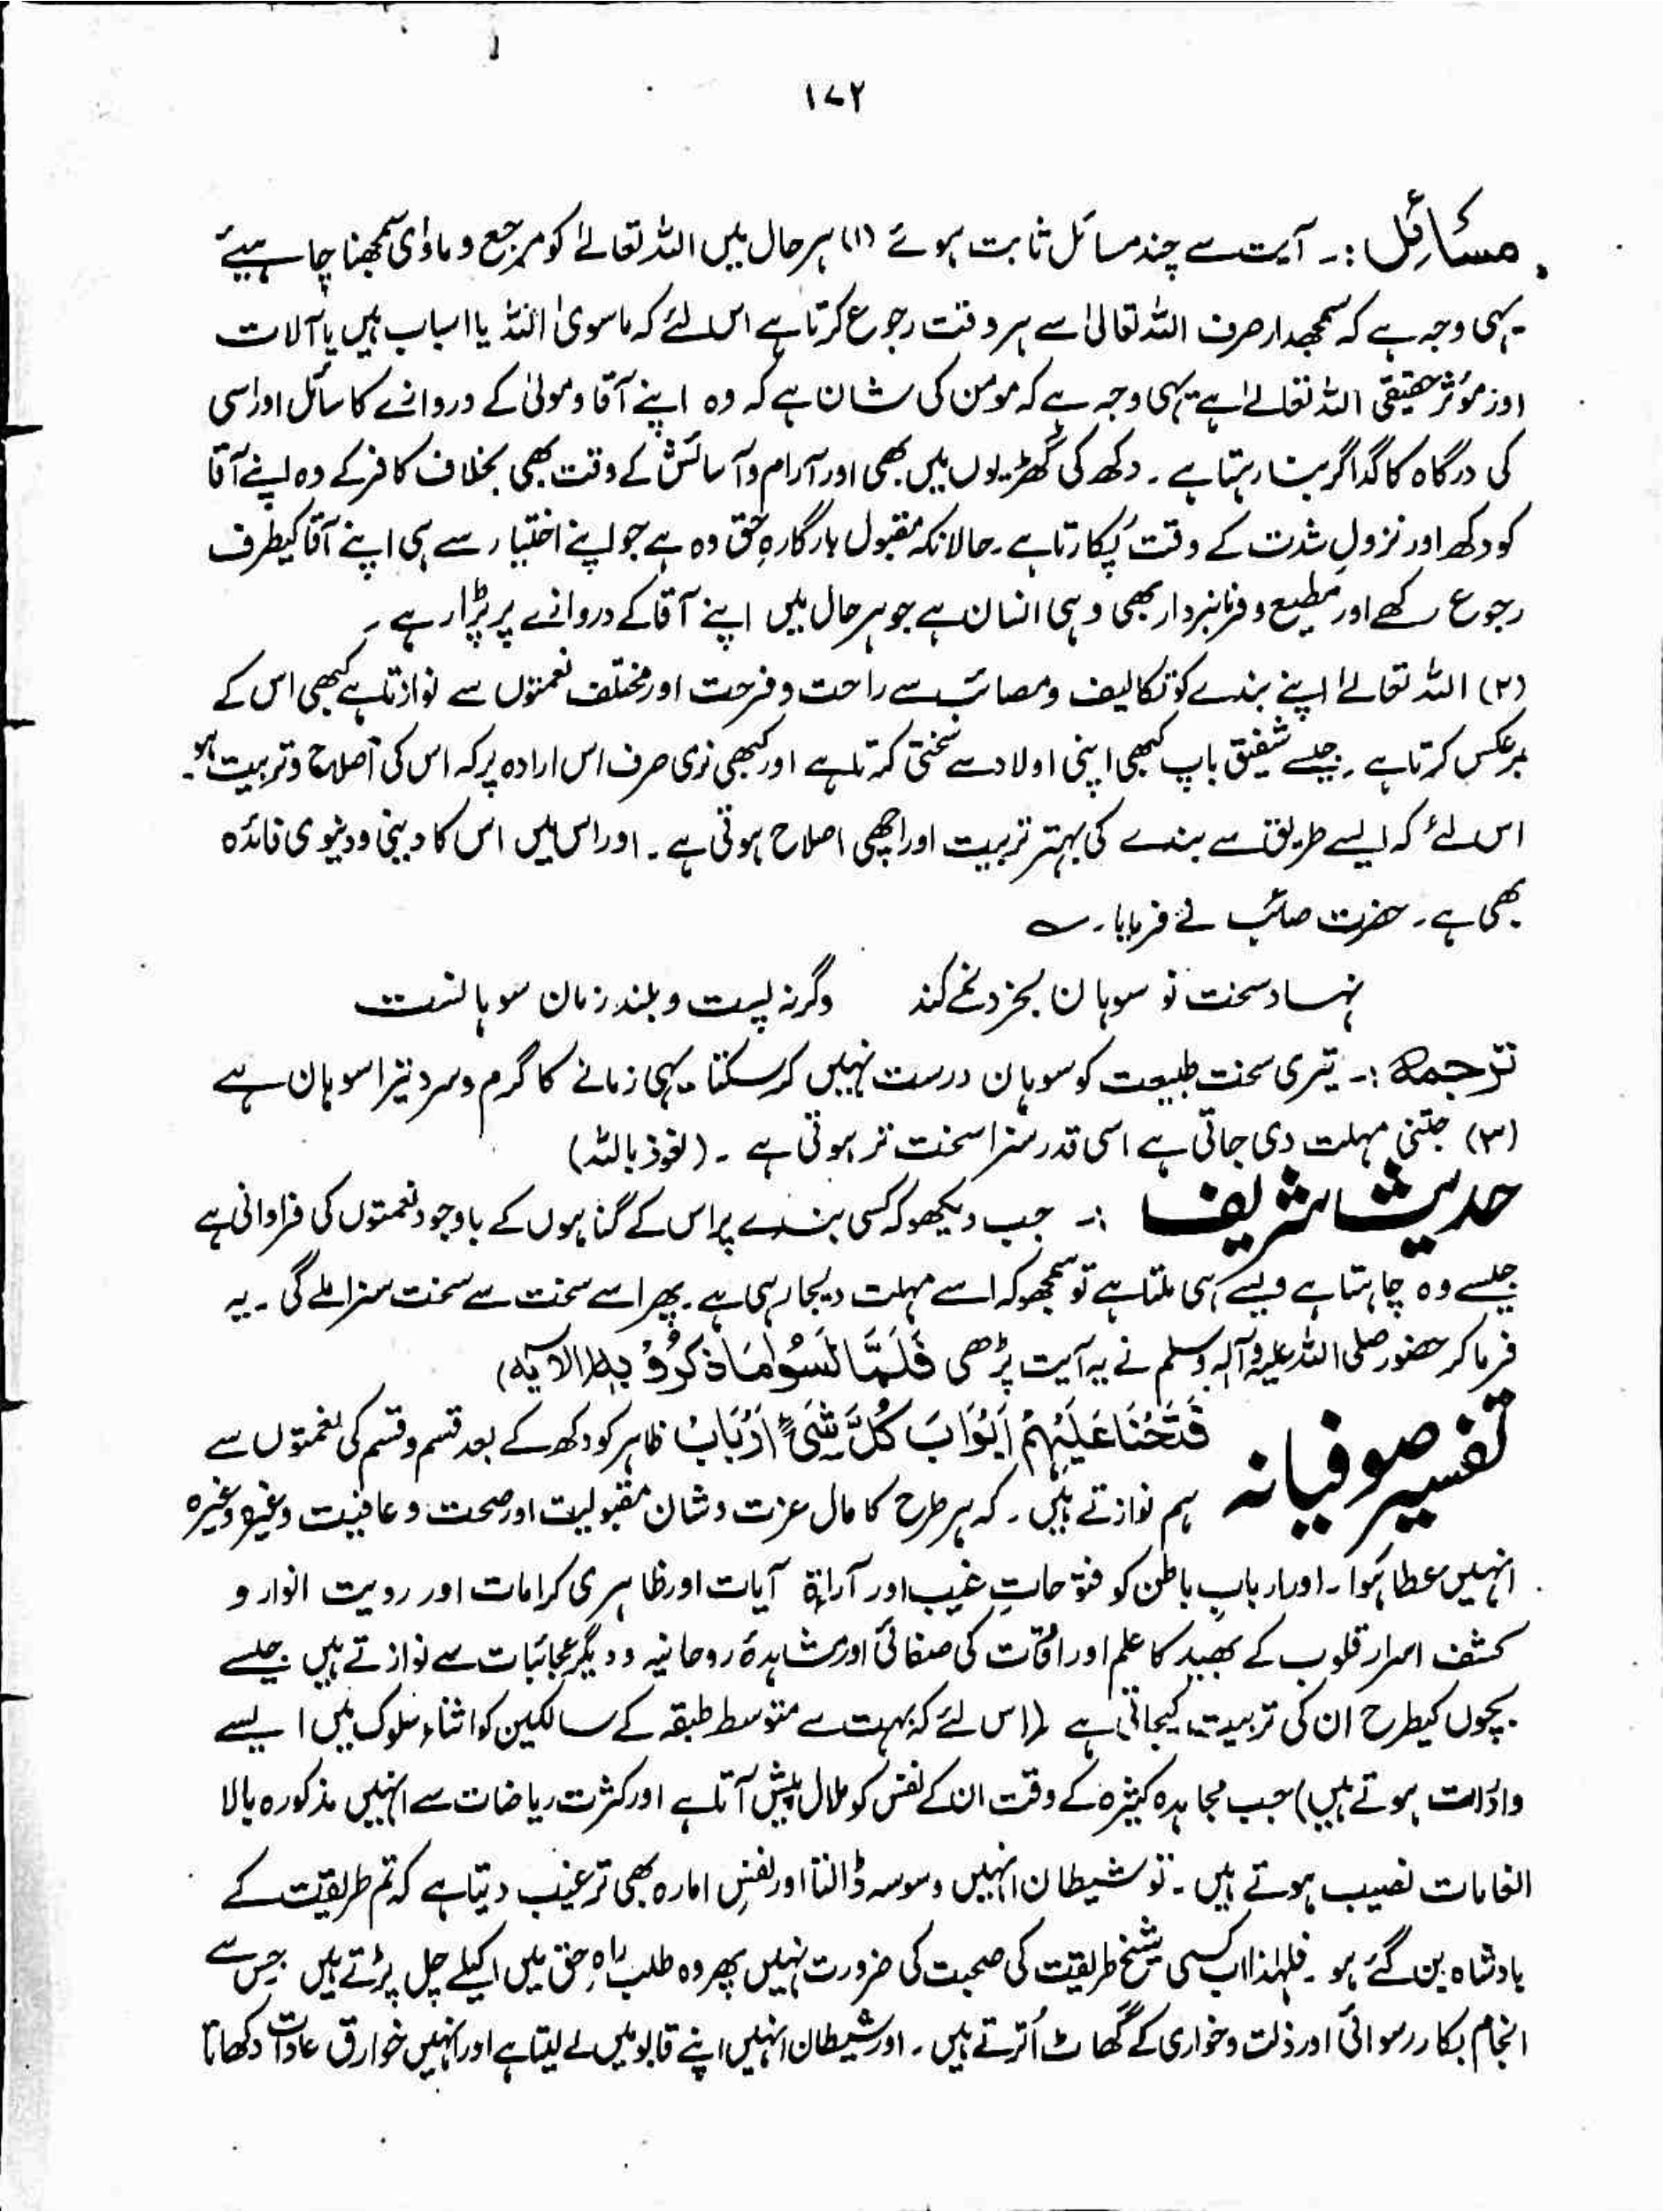 ۱۷۲
مسائل :۔ آیت سے چند مسائل ثابت ہوئے (۱) ہر حال میں اللہ تعالےٰ کو مرجع و ماوٰی سمجھنا چاہیئے
یہی وجہ ہے کہ سمجھدار صرف اللہ تعالیٰ سے ہر وقت رجوع کرتا ہے اس لئے کہ ماسویٰ اللہ یا اسباب ہیں یا آلات
اور مؤثر حقیقی اللہ تعالےٰ ہے یہی وجہ ہے کہ مومن کی شان ہے کہ وہ اپنے آقا و مولیٰ کے دروازے کا سائل اور اسی
کی درگاہ کا گداگر بنا رہتا ہے ۔ دکھ کی گھڑیوں میں بھی اور آرام و آسائش کے وقت بھی بخلاف کافر کے وہ اپنے آقا
کو دکھ اور نزولِ شدت کے وقت پُکارتا ہے ۔ حالانکہ مقبول بارگارہِ حق وہ ہے جو اپنے اختیار سے ہی اپنے آقا کیطرف
رجوع رکھے اور مطیع و فرمانبردار بھی وہی انسان ہے جو ہر حال میں اپنے آقا کے دروازے پر پڑا رہے ۔
(۲) اللہ تعالےٰ اپنے بندے کو تکالیف و مصائب سے راحت و فرحت اور مختلف نعمتوں سے نوازتا ہے کبھی اس کے
برعکس کرتا ہے ۔ جیسے شفیق باپ کبھی اپنی اولاد سے سختی کرتا ہے اور کبھی نرمی صرف اس ارادہ پر کہ اس کی اصلاح و تربیت ہو۔
اس لئے کہ ایسے طریق سے بندے کی بہتر تربیت اور اچھی اصلاح ہوتی ہے ۔ اور اس میں اس کا دینی و دنیوی فائدہ
بھی ہے ۔ حضرت صائب نے فرمایا ۔ ؎
نہاد سخت تو سوہان بخرد نمے کند وگرنہ پست و بلند زمان سوہانست
ترجمہ :۔ تیری سخت طبیعت کو سوہان درست نہیں کرسکتا یہی زمانے کا گرم و سرد تیرا سوہان ہے
(۳) جتنی مہلت دی جاتی ہے اسی قدر سزا سخت تر ہوتی ہے ۔ (نعوذ باللہ)
حدیث شریف :۔ جب دیکھو کہ کسی بندے پر اس کے گناہوں کے باوجود نعمتوں کی فراوانی ہے
جیسے وہ چاہتا ہے ویسے ہی ملتا ہے تو سمجھو کہ اسے مہلت دیجا رہی ہے ۔ پھر اسے سخت سے سخت سزا ملے گی ۔ یہ
فرما کر حضور صلی اللہ علیہ وآلہ وسلم نے یہ آیت پڑھی فَلَمَّا نَسُوْا مَا ذُکِّرُوْ بِہٖ (الآیہ)
تفسیر صوفیانہ فَتَحْنَا عَلَیْہِمْ اَبْوَابَ کُلِّ شَیْءٍ اَرْبَابْ ظاہر کو دکھ کے بعد قسم و قسم کی نعمتوں سے
ہم نوازتے ہیں ۔ کہ ہر طرح کا مال عزت و شان مقبولیت اور صحت و عافیت وغیرہ وغیرہ
انہیں عطا ہُوا ۔ اور اربابِ باطن کو فتوحاتِ غیب اور آراۃ آیات اور ظاہری کرامات اور رویت انوار و
کشف اسرار قلوب کے بھید کا علم اور اوقات کی صفائی اور مشاہدۂ روحانیہ و دیگر عجائبات سے نوازتے ہیں جیسے
بچوں کیطرح ان کی تربیت کیجاتی ہے (اس لئے کہ بہت سے متوسط طبقہ کے سالکین کو اثناء سلوک میں ایسے
واردات ہوتے ہیں) جب مجاہدہ کثیرہ کے وقت ان کے نفس کو ملال پیش آتا ہے اور کثرت ریاضات سے انہیں مذکورہ بالا
انعامات نصیب ہوتے ہیں ۔ تو شیطان انہیں وسوسہ ڈالتا اور نفسِ امارہ بھی ترغیب دیتا ہے کہ تم طریقت کے
بادشاہ بن گئے ہو ۔ فلہٰذا اب کسی شیخ طریقت کی صحبت کی ضرورت نہیں پھر وہ طلب راہِ حق میں اکیلے چل پڑتے ہیں جس سے
انجام بکار رسوائی اور ذلت و خواری کے گھاٹ اُترتے ہیں ۔ اور شیطان انہیں اپنے قابو میں لے لیتا ہے اور انہیں خوارق عادات دکھاتا